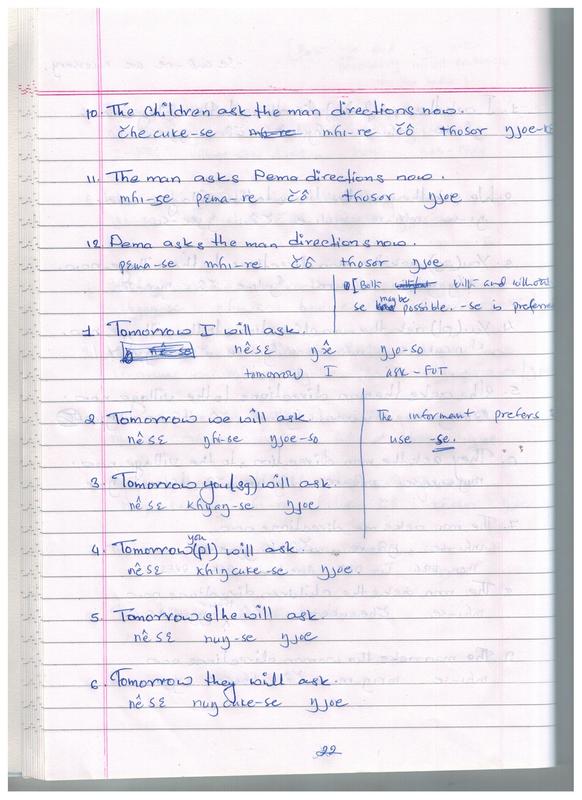 10. The children ask the man directions now.
čhe cuke-se mhi-re mhi-re čô thosor ŋjoe-
11. The man asks Pema directions now.
mhi-se pɛma-re čô thosor ŋjoe
12 Pema asks the man directions now.
pɛma-se mhi-re čô thosor ŋjoe
[Both without with and without
se may be possible. -se is preferre
1. Tomorrow I will ask.
nê-se nêsɛ ŋjo-so
tomorrow I ask-FUT
2. Tomorrow we will ask.
nêsɛ ŋhi-se ŋjoe-so
The informant prefers
use -se.
3. Tomorrow you(sg) will ask.
nêsɛ khyaŋ-se ŋjoe
4. Tomorrow you (pl) will ask.
nêsɛ khiŋcuke-se ŋjoe.
5. Tomorrow s/he will ask.
nêsɛ nuŋ-se ŋjoe
6. Tomorrow they will ask.
nêsɛ nuŋ cuke-se ŋjoe
22